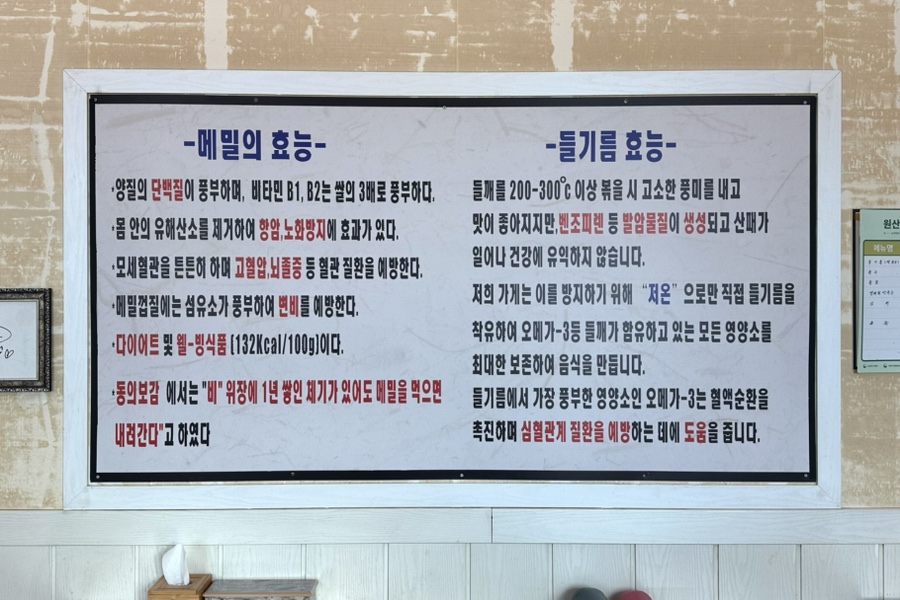 -메밀의 효능-
·양질의 단백질이 풍부하며, 비타민 B1, B2는 쌀의 3배로 풍부하다.
·몸 안의 유해산소를 제거하여 항암,노화방지에 효과가 있다.
·모세혈관을 튼튼히 하며 고혈압,뇌졸증 등 혈관 질환을 예방한다.
·메밀껍질에는 섬유소가 풍부하여 변비를 예방한다.
·다이어트 및 웰-빙식품 (132Kcal/100g)이다.
·동의보감 에서는 "비" 위장에 1년 쌓인 체기가 있어도 메밀을 먹으면
내려간다"고 하였다
-들기름 효능-
들깨를 200-300℃ 이상 볶을 시 고소한 풍미를 내고
맛이 좋아지지만,벤조피렌 등 발암물질이 생성되고 산패가
일어나 건강에 유익하지 않습니다.
저희 가게는 이를 방지하기 위해 "저온" 으로만 직접 들기름을
착유하여 오메가-3등 들깨가 함유하고 있는 모든 영양소를
최대한 보존하여 음식을 만듭니다.
들기름에서 가장 풍부한 영양소인 오메가-3는 혈액순환을
촉진하며 심혈관계 질환을 예방하는 데에 도움을 줍니다.
원산
메뉴명